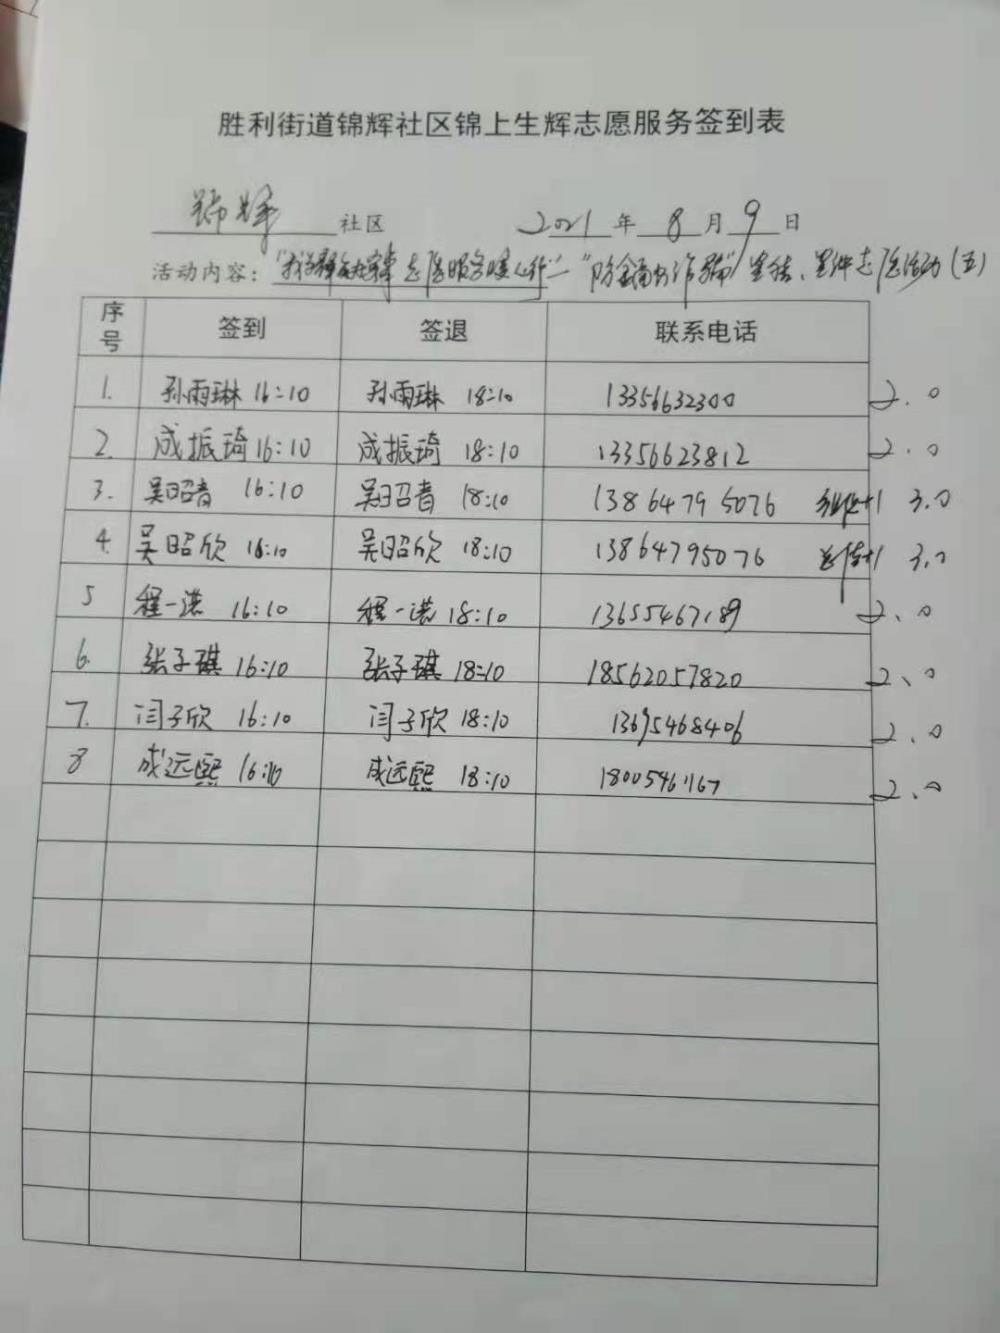 胜利街道锦辉社区锦上生辉志愿服务签到表
锦辉 社区 2021 年 8 月 9 日
活动内容： 志愿服务暖心行"—"防金融诈骗" 宣传、 志愿活动（五）
序号 签到 签退 联系电话
1. 孙雨琳 16:10 孙雨琳 18:10 13356632300 2.0
2. 成振琦 16:10 成振琦 18:10 13356623812 2.0
3. 吴昭 16:10 吴昭 18:10 13864795076 +1 3.0
4. 吴昭欣 16:10 吴昭欣 18:10 13864795076 +1 3.0
5 程一诺 16:10 程一诺 18:10 13655467189 2.0
6. 张子琪 16:10 张子琪 18:10 18562057820 2.0
7. 闫子欣 16:10 闫子欣 18:10 13695468406 2.0
8 成远熙 16:10 成远熙 18:10 18005461167 2.0